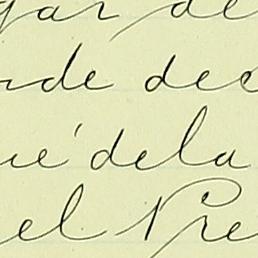 gar de
nde dec
ué dela
el Pre